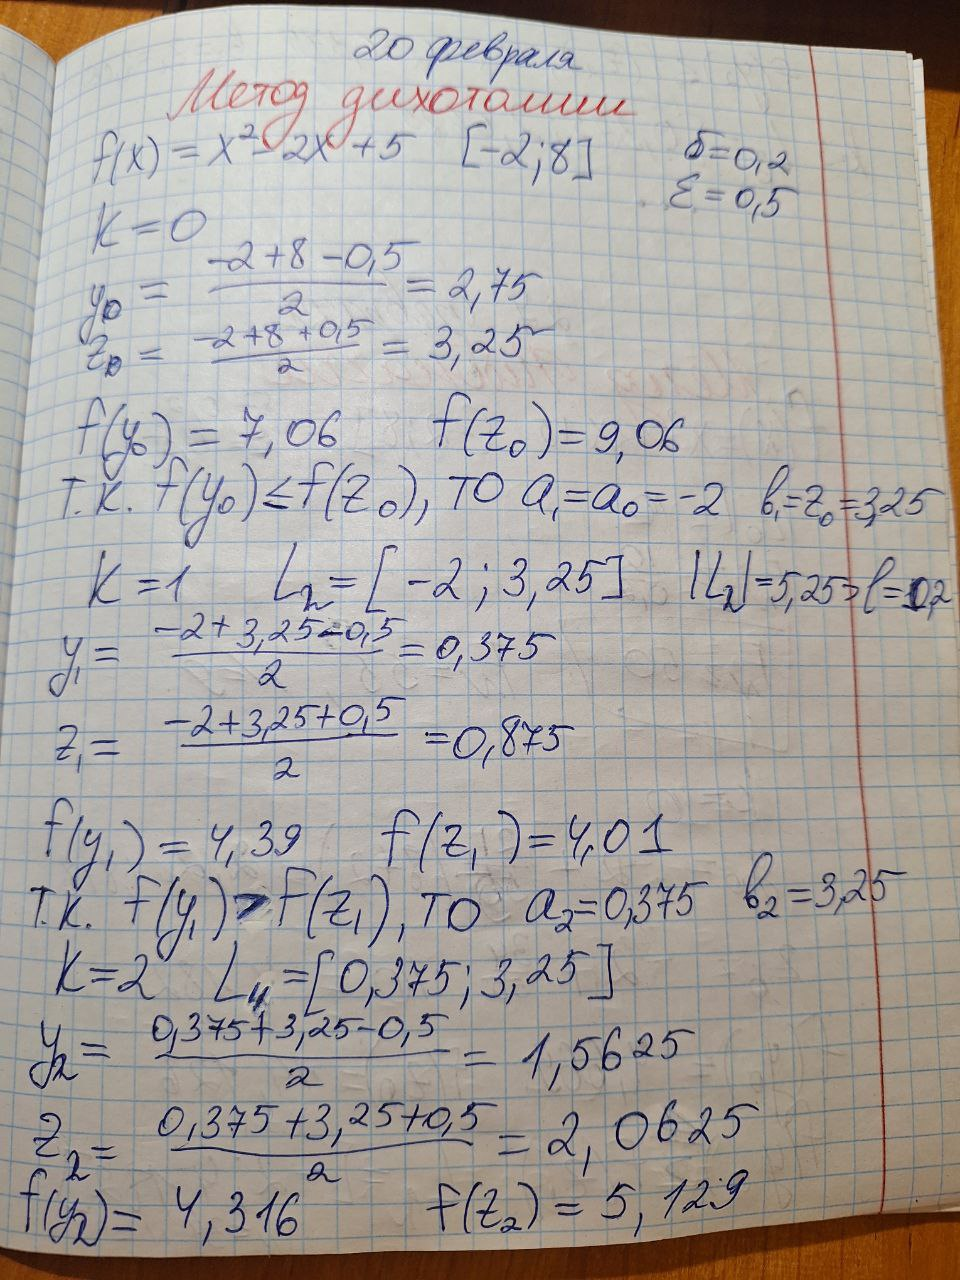 20 февраля
Метод дихотомии
f(x) = x² - 2x + 5 [-2; 8] δ = 0,2
ε = 0,5
K = 0
y₀ = (-2 + 8 - 0,5)/2 = 2,75
z₀ = (-2 + 8 + 0,5)/2 = 3,25
f(y₀) = 7,06 f(z₀) = 9,06
т.к. f(y₀) ≤ f(z₀), то a₁ = a₀ = -2 b₁ = z₀ = 3,25
K = 1 L₂ = [-2; 3,25] |L₂| = 5,25 > l =
y₁ = (-2 + 3,25 - 0,5)/2 = 0,375
z₁ = (-2 + 3,25 + 0,5)/2 = 0,875
f(y₁) = 4,39 f(z₁) = 4,01
т.к. f(y₁) > f(z₁), то a₂ = 0,375 b₂ = 3,25
K = 2 L₄ = [0,375; 3,25]
y₂ = (0,375 + 3,25 - 0,5)/2 = 1,5625
z₂ = (0,375 + 3,25 + 0,5)/2 = 2,0625
f(y₂) = 4,316 f(z₂) = 5,129